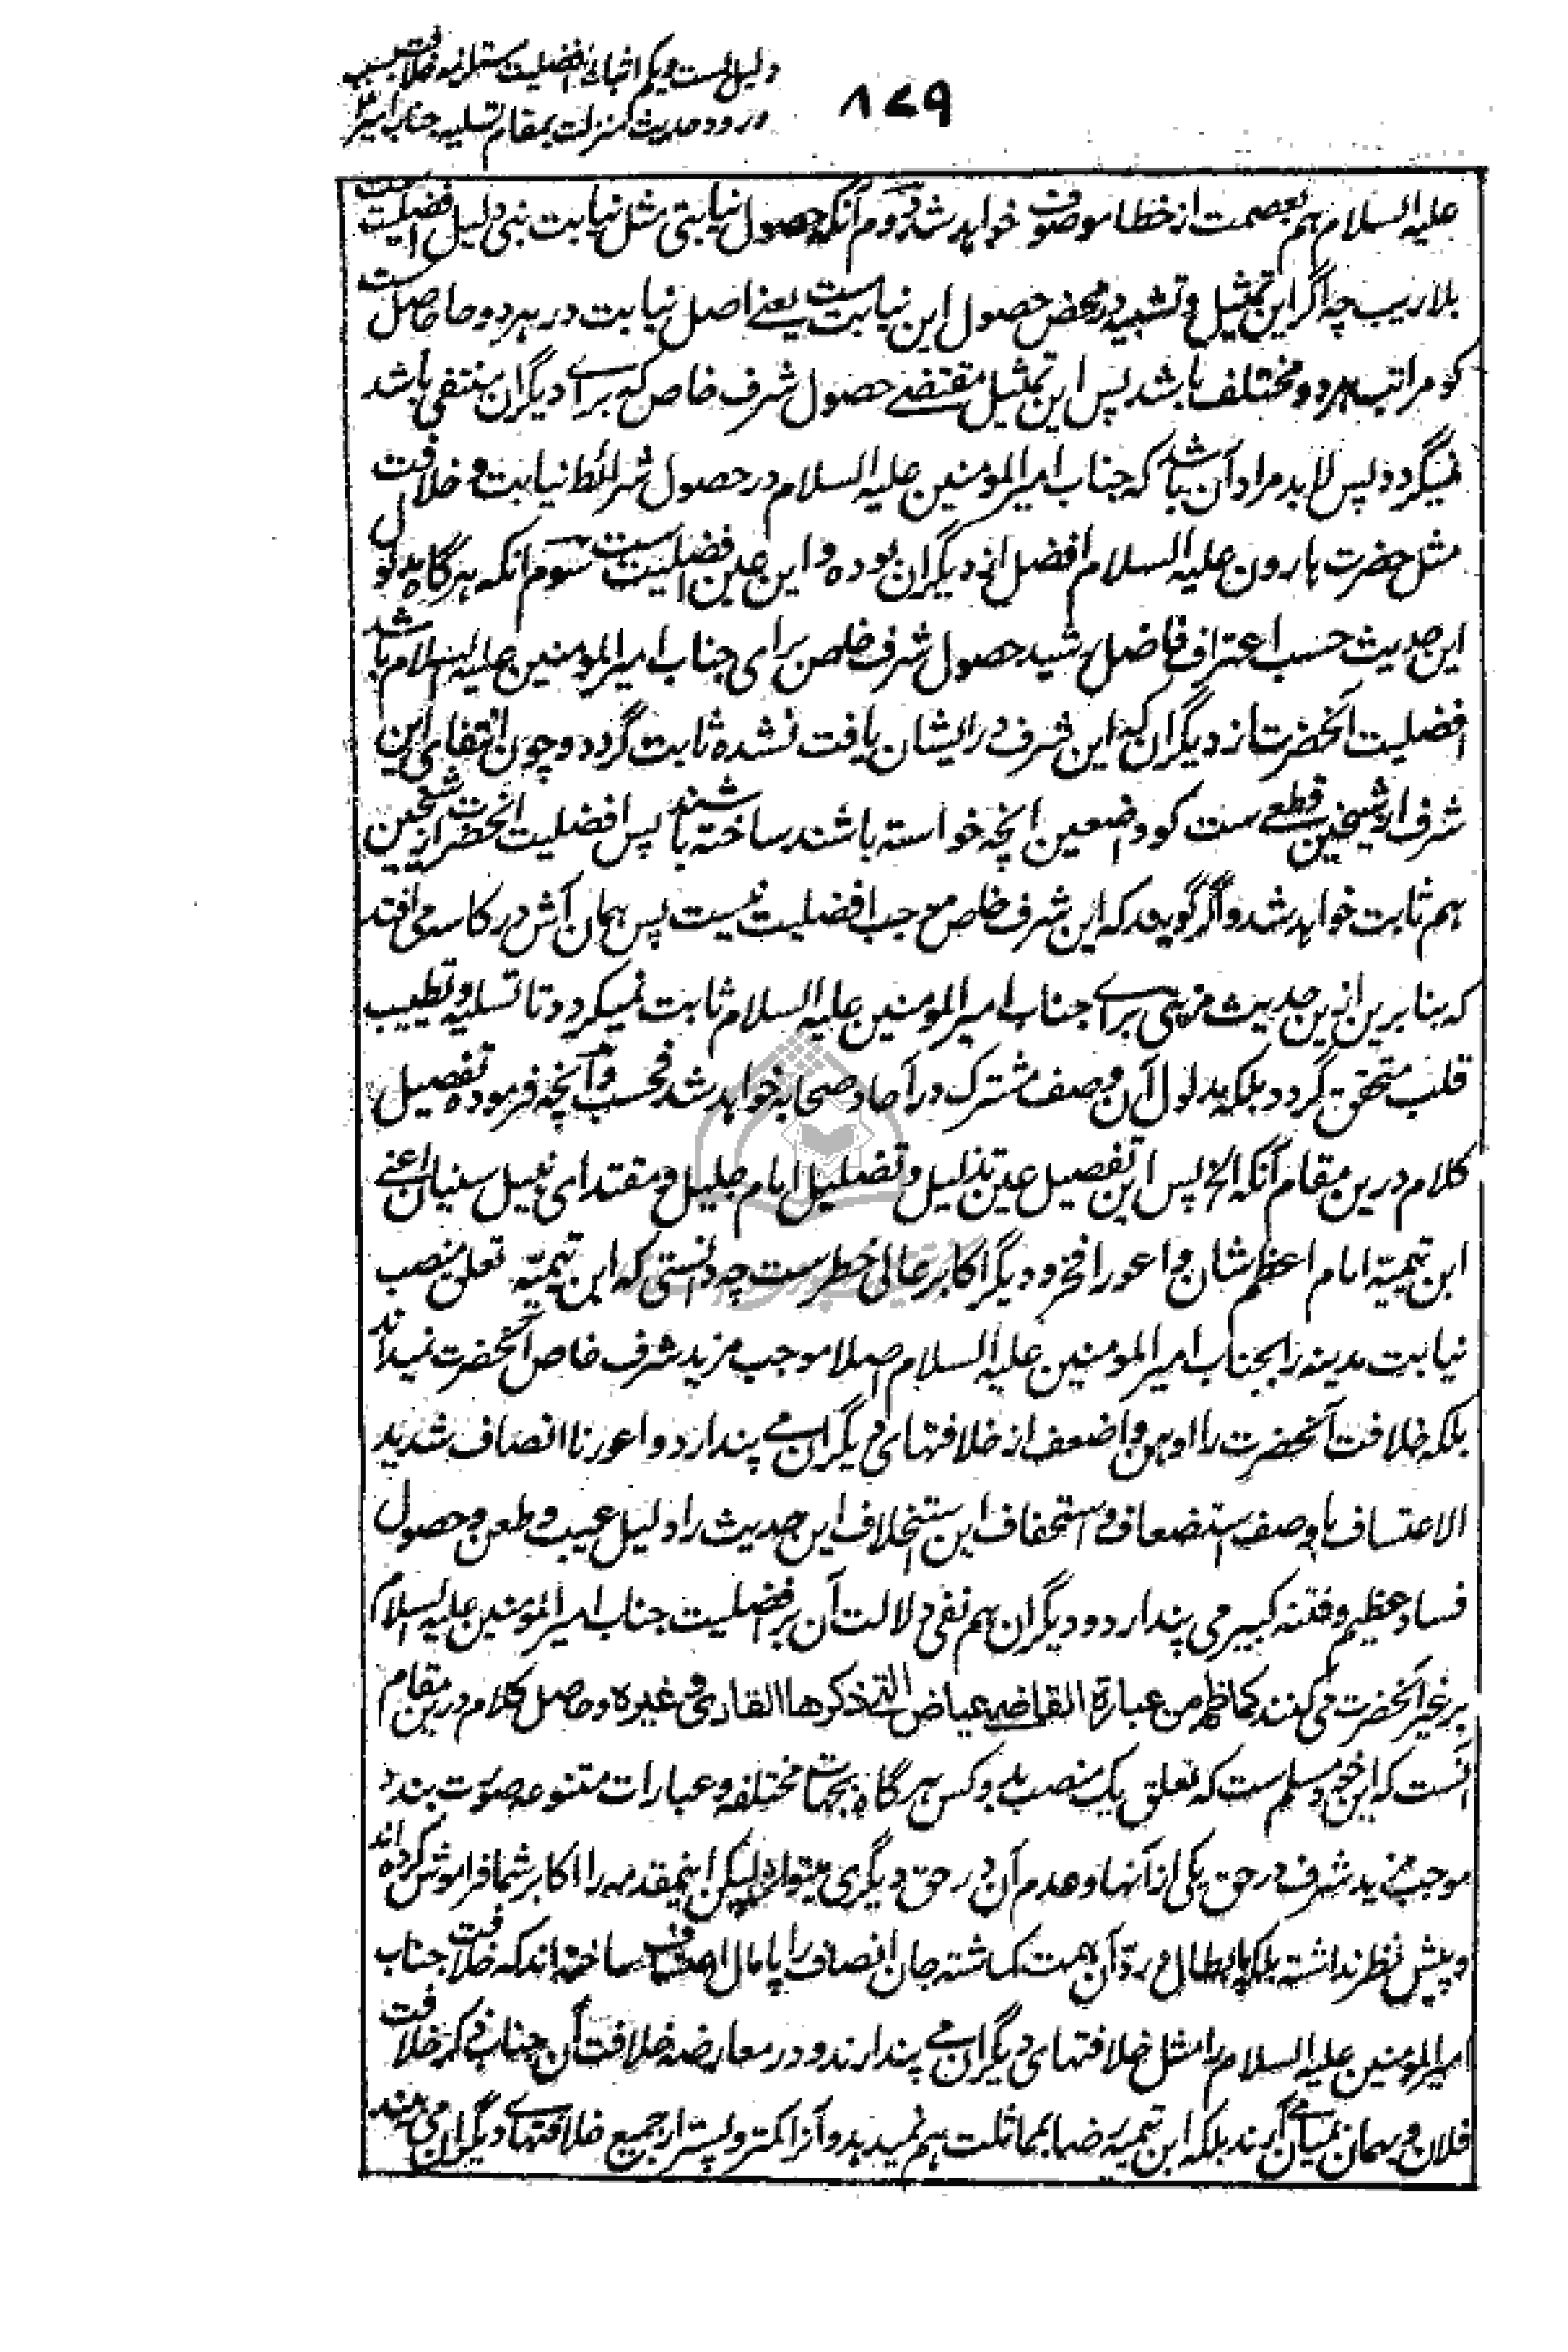 دلیل بست و یکم اثبات افضلیت مستلزمه خلافت بسبب
ورود حدیث منزلت بمقام تسلیه جناب امیر
۸۷۹
علیه السلام هم بعصمت از خطا موصوف خواهد شد دوم آنکه حصول نیابتی مثل نیابت نبی دلیل افضلیت ست
بلا ریب چه اگر این تمثیل و تشبیه در محض حصول این نیابت ست یعنے اصل نیابت در هر دو جا حاصل ست
کو مراتب هر دو مختلف باشد پس این تمثیل مقتضے حصول شرف خاص که براے دیگران منتفی باشد
نمیگردد پس لابد مراد آن باشد که جناب امیر المومنین علیه السلام در حصول شرائط نیابت و خلافت
مثل حضرت هارون علیه السلام افضل از دیگران بوده و این عین افضلیت ست سوم انکه هر گاه مدلول
این حدیث حسب اعتراف فاضل رشید حصول شرف خاص برای جناب امیر المومنین علیه السلام باشد
افضلیت آنحضرت از دیگران که این شرف در ایشان یافت نشده ثابت گردد و چون انتفای این
شرف از شیخین قطعے ست کو واضعین انچه خواسته باشند ساخته باشند پس افضلیت انحضرت از شیخین
هم ثابت خواهد شد و اگر گویند که این شرف خاص موجب افضلیت نیست پس همان آش در کاسه می افتد
که بنابرین ازین حدیث مزیتی براے جناب امیر المومنین علیه السلام ثابت نمیکردد تا تسلیه و تطییب
قلب متحقق گردد بلکه مدلول آن وصف مشترک در آحاد صحابه خواهد شد فحسب و آنچه فرموده تفصیل
کلام درین مقام آنکه الخ پس این تفصیل عین تذلیل و تضلیل امام جلیل و مقتدای نبیل سنیان اعنے
ابن تیمیة امام اعظم شان و اعور افخر و دیگر اکابر عالی خطر ست چه دانستی که ابن تیمیّة تعلق منصب
نیابت مدینه را بجناب امیر المومنین علیه السلام اصلا موجب مزید شرف خاص آنحضرت نمیداند
بلکه خلافت آنحضرت را اوهن و اضعف از خلافتهای دیگران مے پندارد و اعور نا انصاف شدید
الاعتساف با وصف استضعاف و استخفاف این استخلاف این حدیث را دلیل عیب و طعن و حصول
فساد عظیم و فتنه کبیر می پندارد و دیگران هم نفی دلالت آن بر افضلیت جناب امیر المومنین علیه السلام
بر غیر آنحضرت می کنند کما ظهر من عبارة القاضے عیاض التے ذکرها القاری و غیره و حاصل کلام درین مقام
آنست که این خود مسلم ست که تعلق یک منصب بدو کس هر گاه بجهات مختلفه و عبارات متنوعه صورت بندد
موجب مزید شرف در حق یکی از آنها و عدم آن در حق دیگری میتواند شد لیکن اینمقدمه را اکابر شما فراموش کرده اند
و پیش نظر نداشته بلکه بابطال و رد آن همت گماشته جان انصاف را پامال ساخته اند که خلافت جناب
امیر المومنین علیه السلام را مثل خلافتهای دیگران مے پندارند و در معارضه خلافت آن جناب ذکر خلافت
فلان و بهمان بمیان مے آرند بلکه ابن تیمیه رضا بمماثلت هم نمیدهد و آنرا کمتر و پستر از جمیع خلافتهاے دیگران می